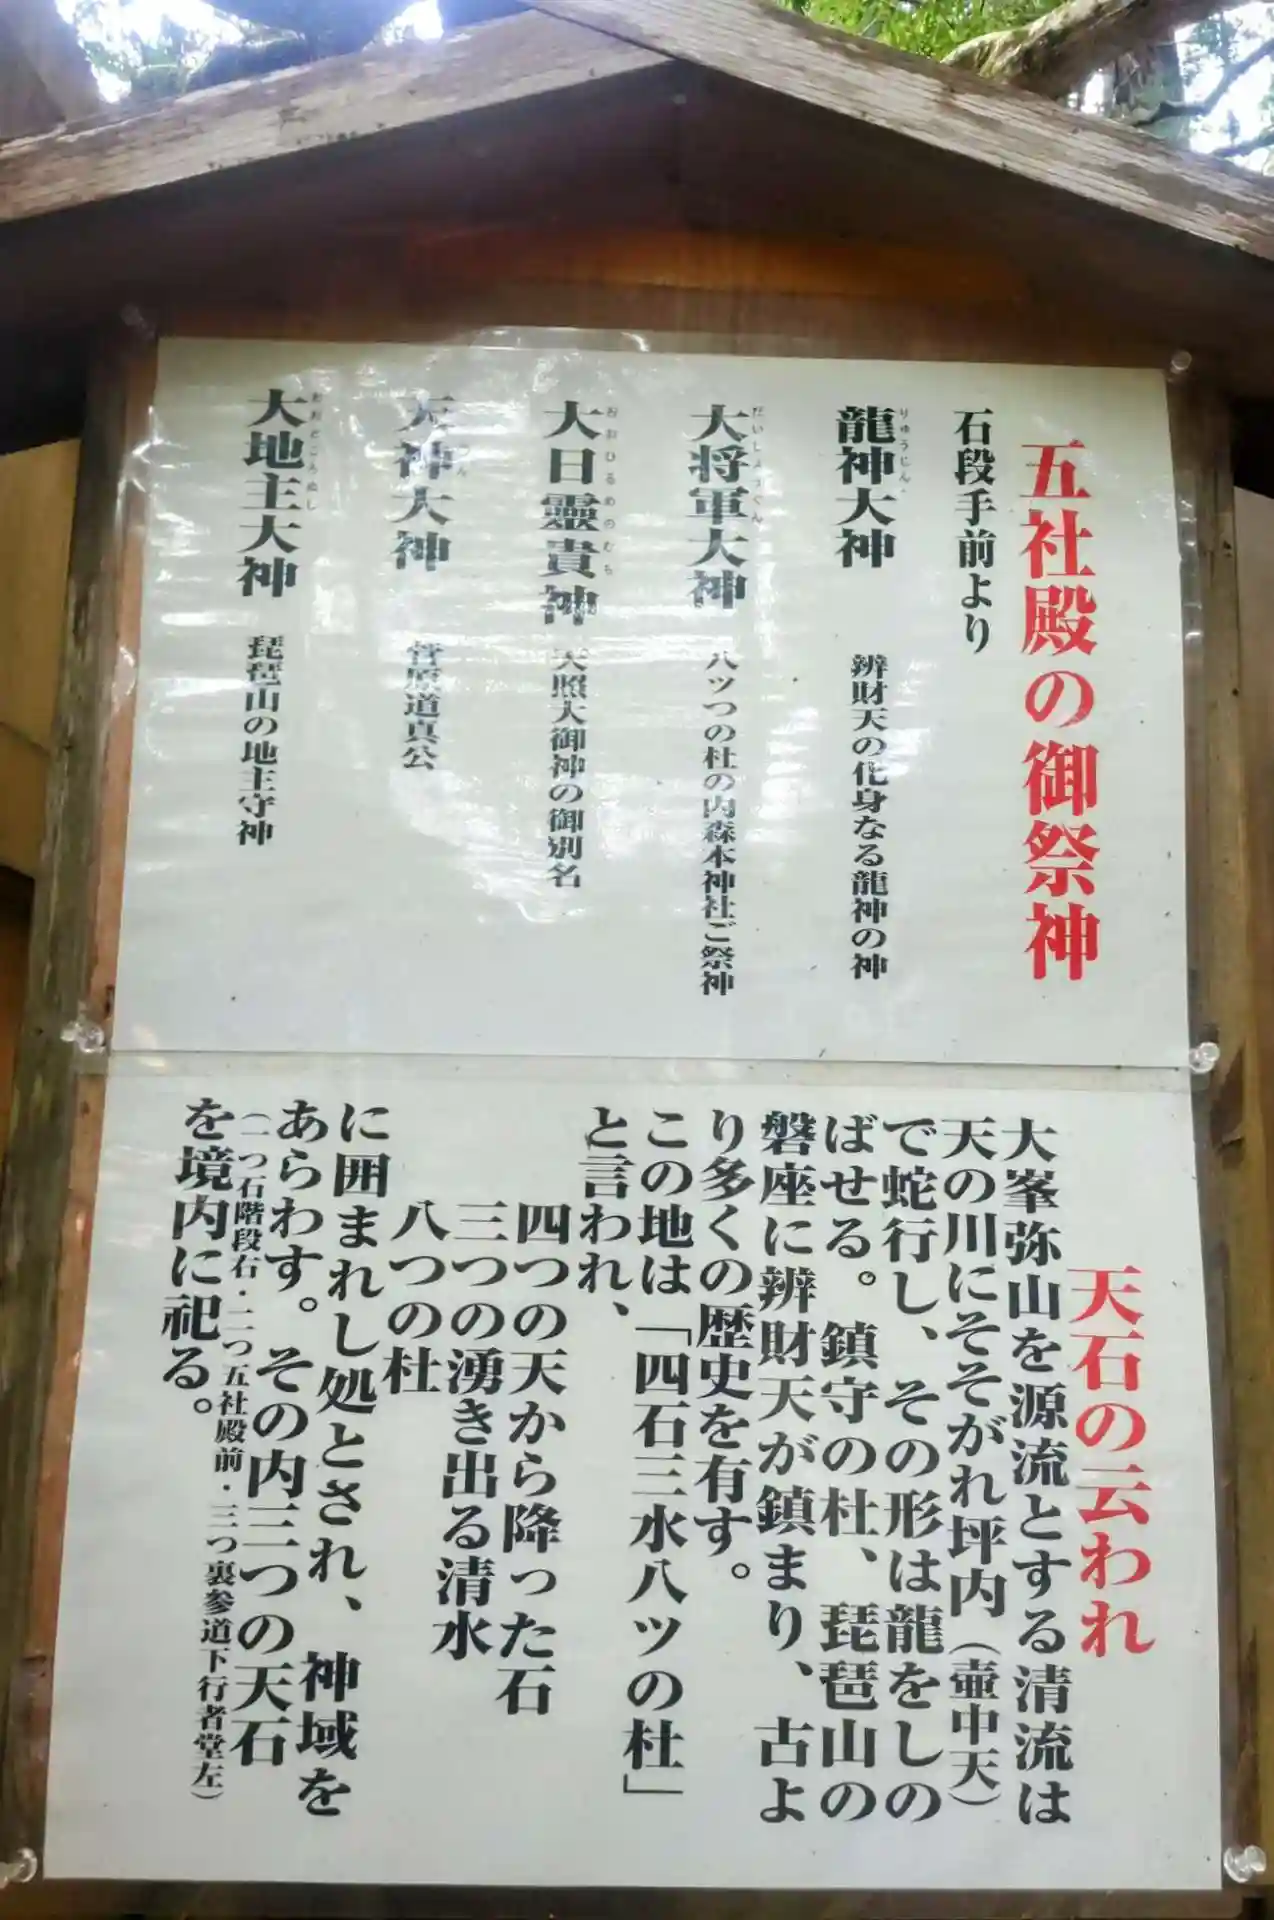 五社殿の御祭神
石段手前より
龍神大神 辨財天の化身なる龍神の神
りゅうじん
大将軍大神 八ツつの杜の内森本神社ご祭神
だいしょうぐん
大日靈貴神 天照大御神の御別名
おおひるめのむち
天神大神 菅原道真公
大地主大神 琵琶山の地主守神
おおところぬし
天石の云われ
大峯弥山を源流とする清流は
天の川にそそがれ坪内（壷中天）
で蛇行し、その形は龍をしの
ばせる。鎮守の杜、琵琶山の
磐座に辨財天が鎮まり、古よ
り多くの歴史を有す。
この地は「四石三水八ツの杜」
と言われ、
四つの天から降った石
三つの湧き出る清水
八つの杜
に囲まれし処とされ、神域を
あらわす。その内三つの天石
（一つ石階段右・二つ五社殿前・三つ裏参道下行者堂左）
を境内に祀る。